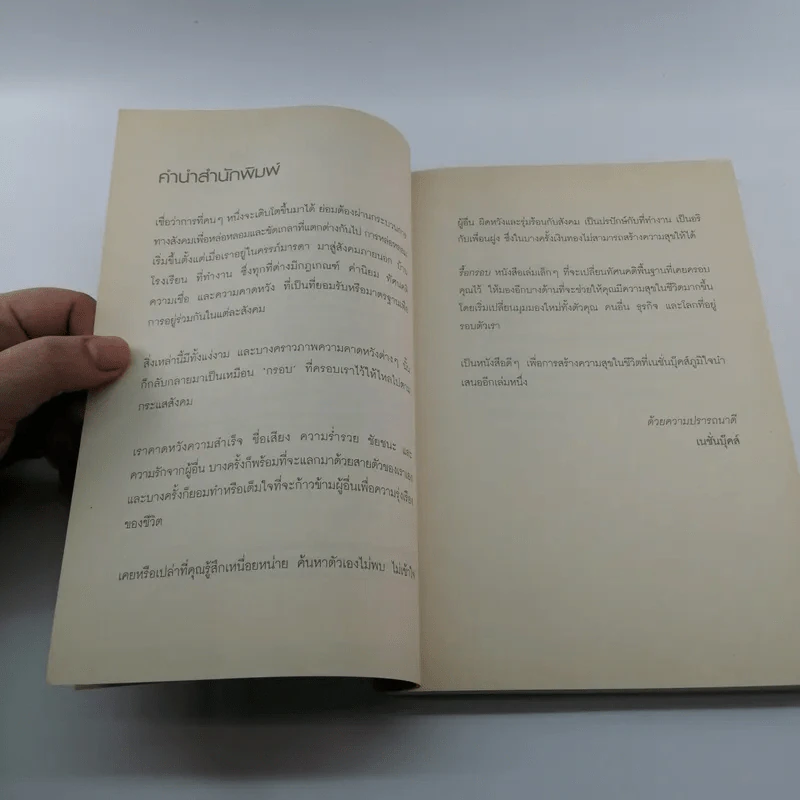 คำนำสำนักพิมพ์
เชื่อว่าการที่คนๆ หนึ่งจะเติบโตขึ้นมาได้ ย่อมต้องผ่านกระบวนการ
ทางสังคมเพื่อหล่อหลอมและขัดเกลาที่แตกต่างกันไป การหล่อหลอม
เริ่มขึ้นตั้งแต่เมื่อเราอยู่ในครรภ์มารดา มาสู่สังคมภายนอก บ้าน
โรงเรียน ที่ทำงาน ซึ่งทุกที่ต่างมีกฎเกณฑ์ ค่านิยม ทัศนคติ
ความเชื่อ และความคาดหวัง ที่เป็นที่ยอมรับหรือมาตรฐานเพื่อ
การอยู่ร่วมกันในแต่ละสังคม
สิ่งเหล่านี้มีทั้งแง่งาม และบางคราวภาพความคาดหวังต่างๆ นั้น
ก็กลับกลายมาเป็นเหมือน 'กรอบ' ที่ครอบเราไว้ให้ไหลไปตาม
กระแสสังคม
เราคาดหวังความสำเร็จ ชื่อเสียง ความร่ำรวย ชัยชนะ และ
ความรักจากผู้อื่น บางครั้งก็พร้อมที่จะแลกมาด้วยสายตัวของเราเอง
และบางครั้งก็ยอมทำหรือเต็มใจที่จะก้าวข้ามผู้อื่นเพื่อความรุ่งเรือง
ของชีวิต
เคยหรือเปล่าที่คุณรู้สึกเหนื่อยหน่าย ค้นหาตัวเองไม่พบ ไม่เข้าใจ
ผู้อื่น ผิดหวังและรุ่มร้อนกับสังคม เป็นปรปักษ์กับที่ทำงาน เป็นอริ
กับเพื่อนฝูง ซึ่งในบางครั้งเงินทองไม่สามารถสร้างความสุขให้ได้
รื้อกรอบ หนังสือเล่มเล็กๆ ที่จะเปลี่ยนทัศนคติพื้นฐานที่เคยครอบ
คุณไว้ ให้มองอีกบางด้านที่จะช่วยให้คุณมีความสุขในชีวิตมากขึ้น
โดยเริ่มเปลี่ยนมุมมองใหม่ทั้งตัวคุณ คนอื่น ธุรกิจ และโลกที่อยู่
รอบตัวเรา
เป็นหนังสือดีๆ เพื่อการสร้างความสุขในชีวิตที่เนชั่นบุ๊คส์ภูมิใจนำ
เสนออีกเล่มหนึ่ง
ด้วยความปรารถนาดี
เนชั่นบุ๊คส์